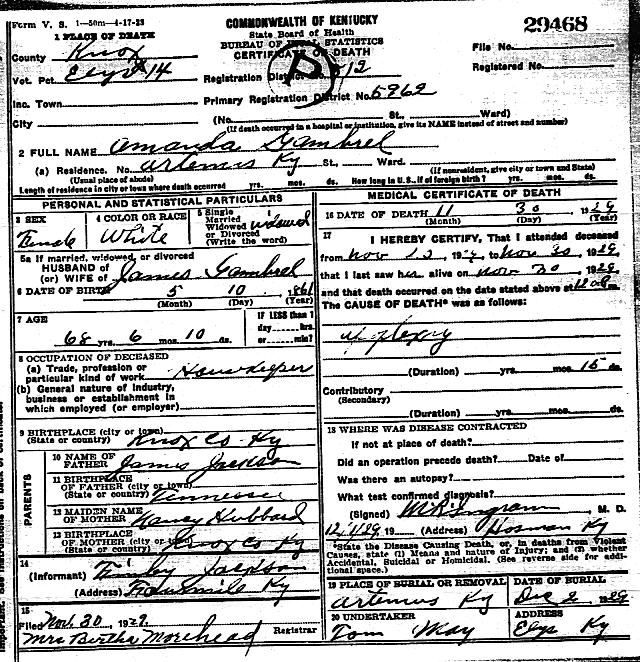 Form V. S. 1—50m—4-17-23
COMMONWEALTH OF KENTUCKY
State Board of Health
BUREAU OF VITAL STATISTICS
CERTIFICATE OF DEATH
29468
1 PLACE OF DEATH
County Knox
Vot. Pct. 14
Inc. Town
City
Registration District No. 512
Primary Registration District No. 5962
File No.
Registered No.
P
(No. St., Ward)
(If death occurred in a hospital or institution, give its NAME instead of street and number)
2 FULL NAME Amanda Gambrel
(a) Residence. No. Artemus Ky St., Ward.
(Usual place of abode) (If nonresident, give city or town and State)
Length of residence in city or town where death occurred yrs. mos. ds. How long in U.S., if of foreign birth? yrs. mos. ds.
PERSONAL AND STATISTICAL PARTICULARS
3 SEX
Female
4 COLOR OR RACE
White
5 Single
Married
Widowed
or Divorced
(Write the word)
widowed
5a If married, widowed, or divorced
HUSBAND of
(or) WIFE of James Gambrel
6 DATE OF BIRTH 5 10 1861
(Month) (Day) (Year)
7 AGE
68 yrs. 6 mos. 10 ds.
IF LESS than 1
day hrs.
or min?
8 OCCUPATION OF DECEASED
(a) Trade, profession or
particular kind of work Housekeeper
(b) General nature of industry,
business or establishment in
which employed (or employer)
9 BIRTHPLACE (city or town)
(State or country) Knox Co Ky
PARENTS
10 NAME OF
FATHER James Jackson
11 BIRTHPLACE
OF FATHER (city or town)
(State or country) Tennessee
12 MAIDEN NAME
OF MOTHER Nancy Hubbard
13 BIRTHPLACE
OF MOTHER (city or town)
(State or country) Knox Co Ky
14
(Informant) Jackson
(Address) Fourmile Ky
15
Filed Nov. 30, 1929
Mrs Bertha Morehead Registrar
MEDICAL CERTIFICATE OF DEATH
16 DATE OF DEATH 11 30 1929
(Month) (Day) (Year)
17
I HEREBY CERTIFY, That I attended deceased
from Nov 1929, to Nov 30 1929
that I last saw her alive on Nov 30 1929
and that death occurred on the date stated above at 12
The CAUSE OF DEATH* was as follows:
(Duration) yrs. mos. 15 ds.
Contributory
(Secondary)
(Duration) yrs. mos. ds.
18 WHERE WAS DISEASE CONTRACTED
If not at place of death?
Did an operation precede death? Date of
Was there an autopsy?
What test confirmed diagnosis?
(Signed) Ingram M. D.
19 (Address) Ky
*State the Disease Causing Death, or, in deaths from Violent
Causes, state (1) Means and nature of Injury; and (2) whether
Accidental, Suicidal or Homicidal. (See reverse side for addi-
tional space.)
19 PLACE OF BURIAL OR REMOVAL
Artemus Ky
DATE OF BURIAL
Dec 2 1929
20 UNDERTAKER
Tom May
ADDRESS
Elys Ky